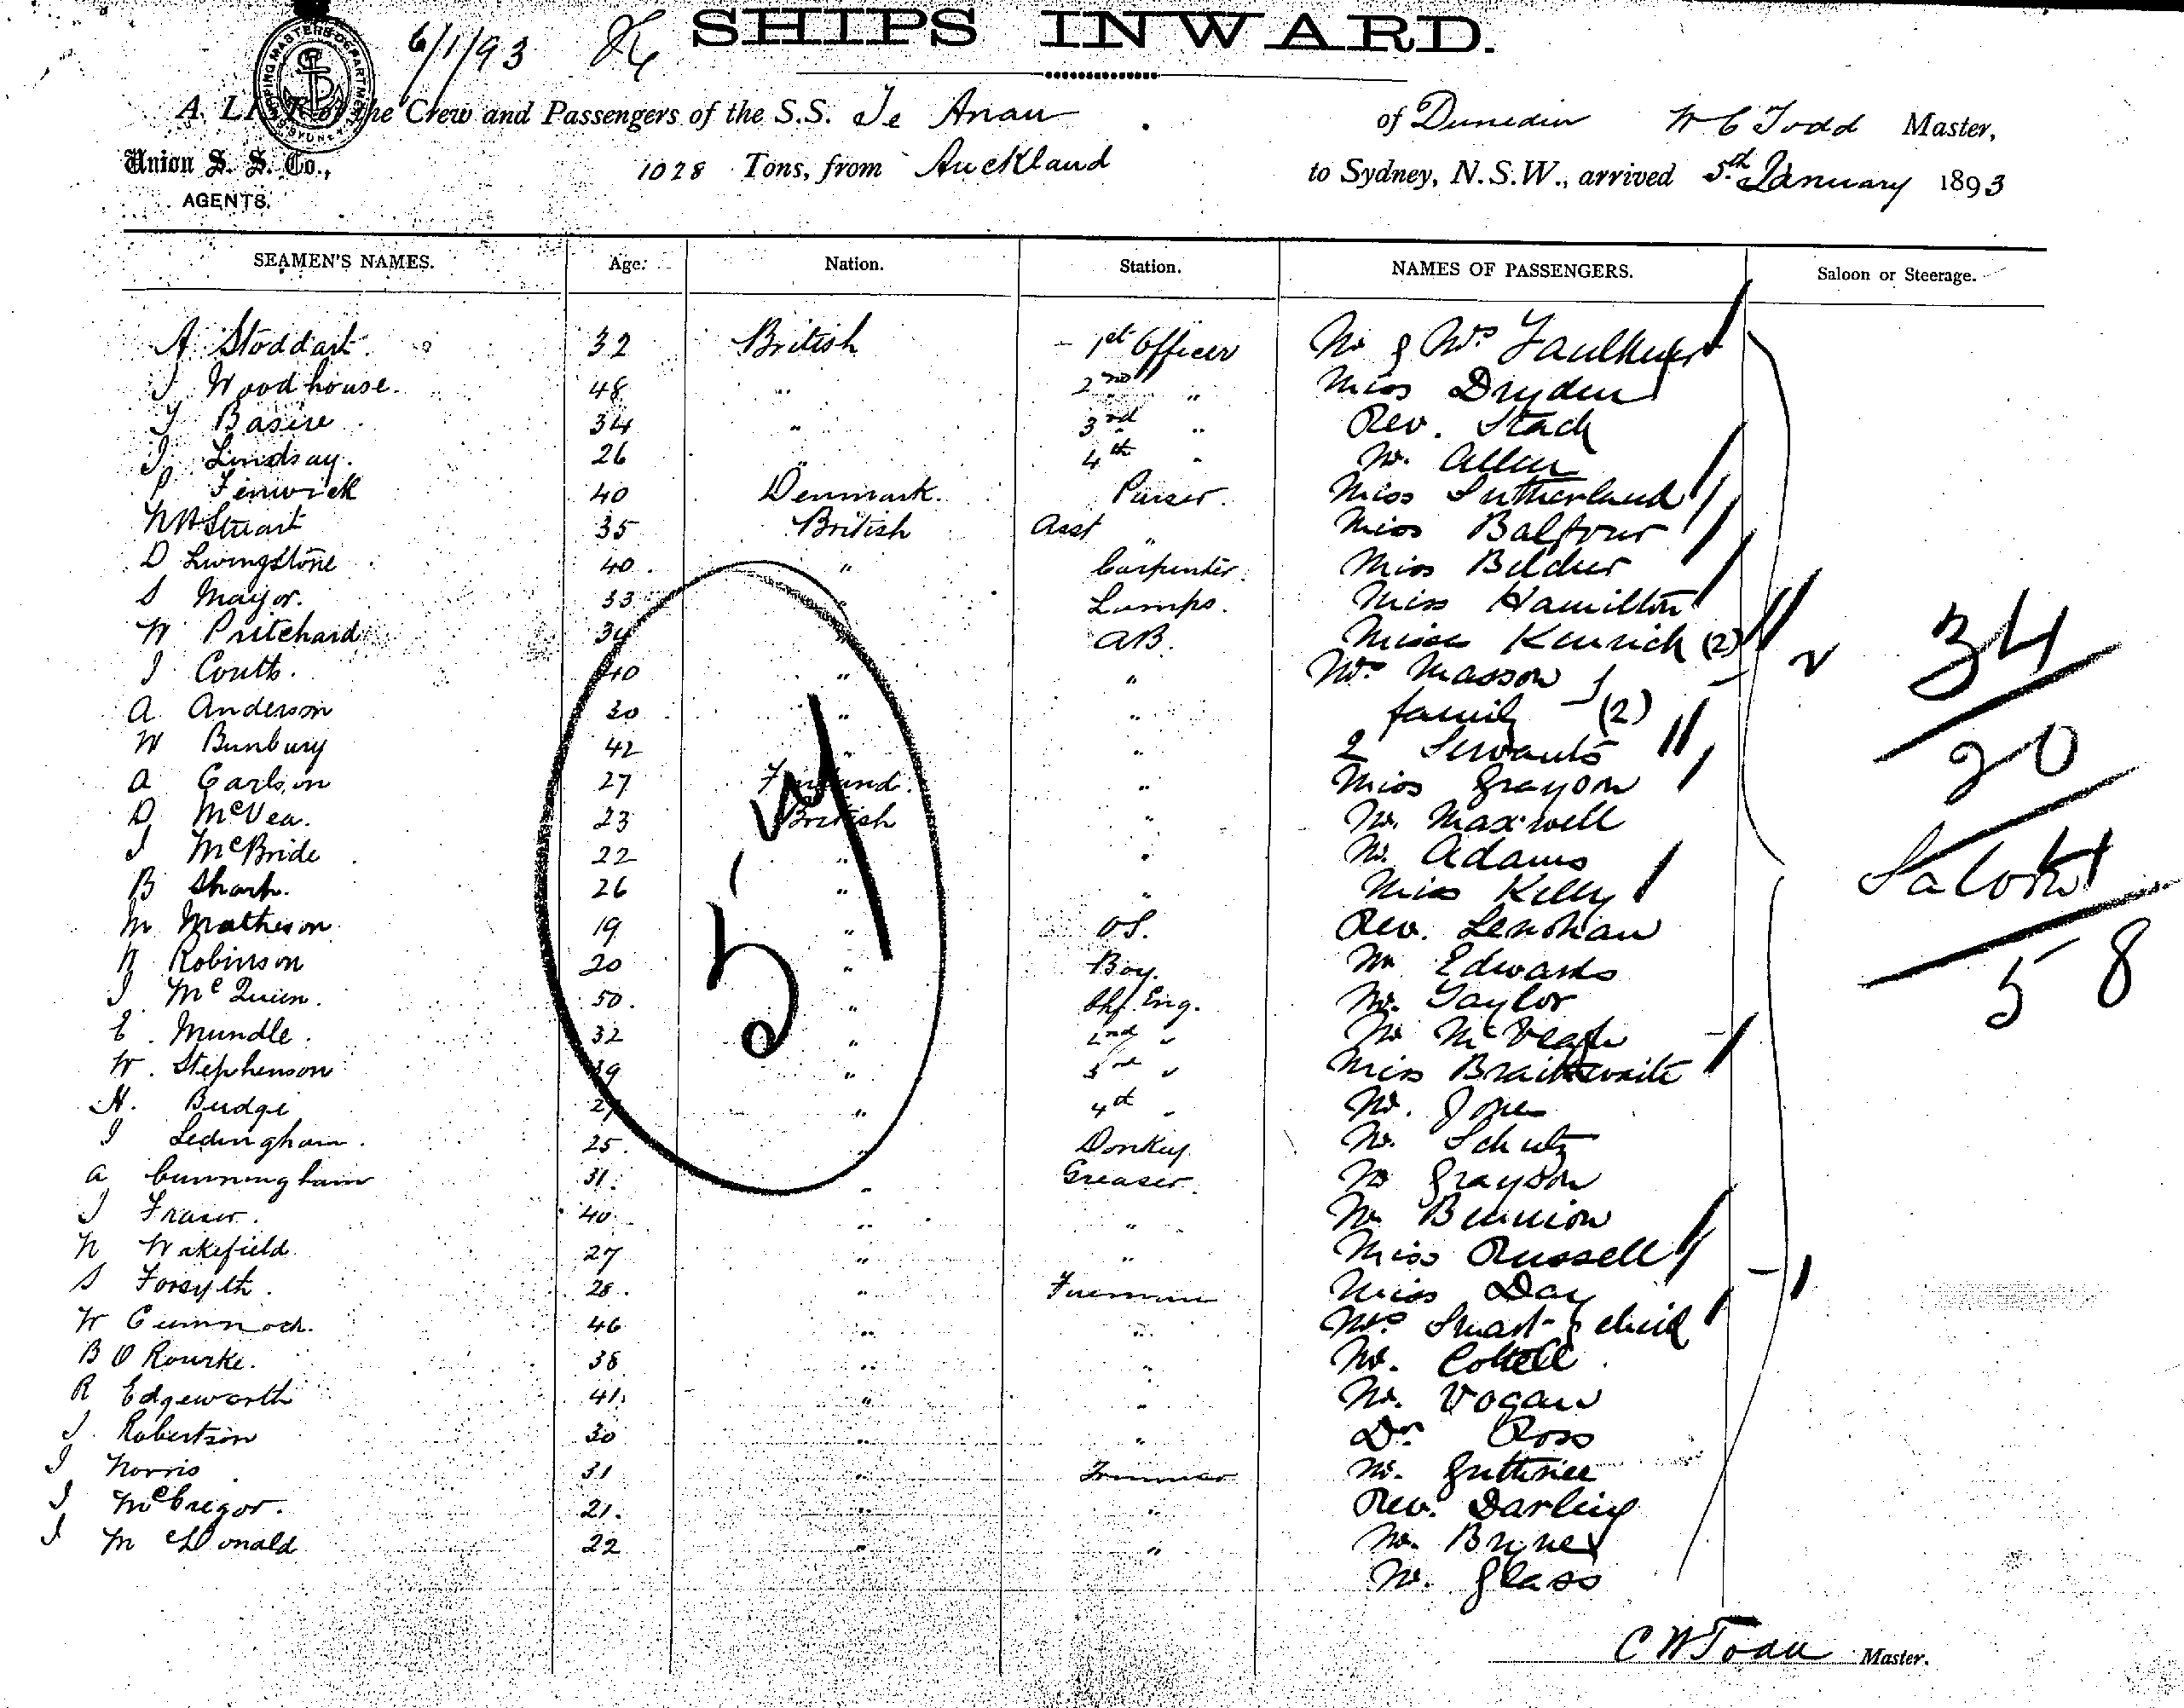 6/1/93 SHIPS INWARD.
SHIPPING MASTERS DEPARTMENT SYDNEY
A LIST of the Crew and Passengers of the S.S. Te Anau of Dunedin W C Todd Master,
Union S. S. Co., 1028 Tons, from Auckland to Sydney, N.S.W., arrived 5th January 1893
AGENTS.
SEAMEN'S NAMES. Age. Nation. Station. NAMES OF PASSENGERS. Saloon or Steerage.
A Stoddart 32 British 1st Officer Mr & Mrs Faulkner
J Woodhouse 48 " 2nd " Miss Dryden
Basire 34 " 3rd " Rev. Stack
J Lindsay 26 " 4th " Mr. Allen
P Fenwick 40 Denmark Purser Miss Sutherland
Stuart 35 British Asst " Miss Balfour
D Livingstone 40 " Carpenter Miss Belcher
S Mayor. 33 " Lamps. Miss Hamilton
W Pritchard 34 " AB. Misses Kenrick (2)
J Coutts. 40 " " Mrs Masson &
A Anderson 30 " " family (2)
W Bunbury 42 " " 2 Servants
A Carlson 27 Finland " Miss Grayson
D McVea. 23 British " Mr. Maxwell
J McBride 22 " " Mr. Adams
B Sharp. 26 " " Miss Kelly
M Matheson 19 " OS. Rev. Lenihan
Robinson 20 " Boy. Mr Edwards
J McQueen. 50. " Chf Eng. Mr. Taylor
E. Mundle. 32 " 2nd " Mr McVeagh
W. Stephenson 39 " 3rd " Miss Braithwaite
H. Budge 27 " 4th " Mr. Jones
J Ledingham. 25. " Donkey Mr. Schutz
A Cunningham 31. " Greaser. Mr Grayson
J Fraser. 40 " " Mr Bennion
Wakefield 27 " " Miss Russell
S Forsyth. 28. " Fireman Miss Day
W 46 " " Mrs Smart & child
B O Rourke. 38 " " Mr. Cottell
R Edgeworth 41. " " Mr. Vogan
J Robertson 30 " " Dr. Ross
J Norris 31 " Trimmer Mr. Guthrie
J McGregor. 21. " " Rev. Darling
J McDonald 22 " " Mr.
Mr. Glass
34
20
Saloon
58
C W Todd Master.